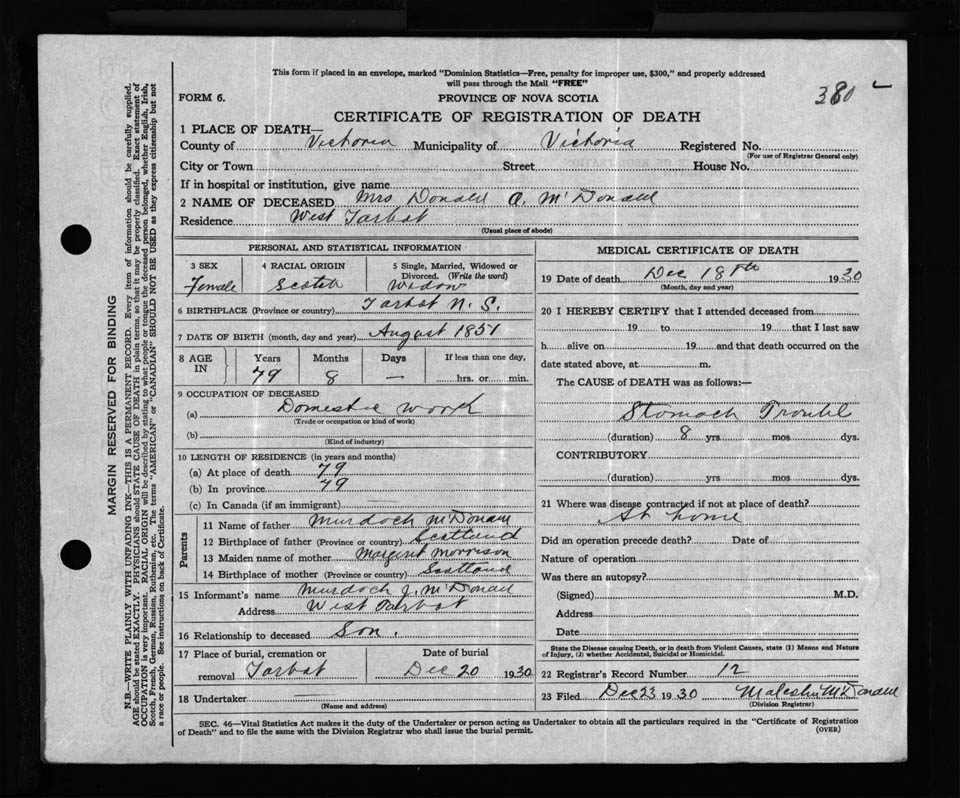 This form if placed in an envelope, marked "Dominion Statistics—Free, penalty for improper use, $300," and properly addressed
will pass through the Mail "FREE"
380
FORM 6.
PROVINCE OF NOVA SCOTIA
CERTIFICATE OF REGISTRATION OF DEATH
1 PLACE OF DEATH—
County of Victoria Municipality of Victoria Registered No.
(For use of Registrar General only)
City or Town Street House No.
If in hospital or institution, give name
2 NAME OF DECEASED Mrs Donald A. McDonald
Residence West Tarbot
(Usual place of abode)
PERSONAL AND STATISTICAL INFORMATION
3 SEX 4 RACIAL ORIGIN 5 Single, Married, Widowed or
Divorced. (Write the word)
Female Scotch Widow
6 BIRTHPLACE (Province or country) Tarbot N. S.
7 DATE OF BIRTH (month, day and year) August 1851
8 AGE IN Years Months Days If less than one day,
79 8 — hrs. or min.
9 OCCUPATION OF DECEASED
(a) Domestic work
(Trade or occupation or kind of work)
(b)
(Kind of industry)
10 LENGTH OF RESIDENCE (in years and months)
(a) At place of death 79
(b) In province 79
(c) In Canada (if an immigrant)
Parents
11 Name of father Murdoch McDonald
12 Birthplace of father (Province or country) Scotland
13 Maiden name of mother Margaret Morrison
14 Birthplace of mother (Province or country) Scotland
15 Informant's name Murdoch J. McDonald
Address West Tarbot
16 Relationship to deceased Son.
17 Place of burial, cremation or Date of burial
removal Tarbot Dec 20 1930
18 Undertaker
(Name and address)
MEDICAL CERTIFICATE OF DEATH
19 Date of death Dec 18th 1930
(Month, day and year)
20 I HEREBY CERTIFY that I attended deceased from
19 to 19 that I last saw
h alive on 19 and that death occurred on the
date stated above, at m.
The CAUSE of DEATH was as follows:—
Stomach Trouble
(duration) 8 yrs. mos. dys.
CONTRIBUTORY
(duration) yrs. mos. dys.
21 Where was disease contracted if not at place of death?
At home
Did an operation precede death? Date of
Nature of operation
Was there an autopsy?
(Signed) M.D.
Address
Date
State the Disease causing Death, or in death from Violent Causes, state (1) Means and Nature
of Injury, (2) whether Accidental, Suicidal or Homicidal.
22 Registrar's Record Number 12
23 Filed Dec 23 1930 McDonald
(Division Registrar)
SEC. 46—Vital Statistics Act makes it the duty of the Undertaker or person acting as Undertaker to obtain all the particulars required in the "Certificate of Registration
of Death" and to file the same with the Division Registrar who shall issue the burial permit.
(OVER)
MARGIN RESERVED FOR BINDING
N.B.—WRITE PLAINLY WITH UNFADING INK—THIS IS A PERMANENT RECORD. Every item of information should be carefully supplied.
AGE should be stated EXACTLY. PHYSICIANS should STATE CAUSE OF DEATH in plain terms, so that it may be properly classified. Exact statement of
OCCUPATION is very important. RACIAL ORIGIN will be described by stating to what people or tongue the deceased person belonged, whether English, Irish,
Scotch, French, German, Russian, Ruthenian, etc. The terms "AMERICAN" or "CANADIAN" SHOULD NOT BE USED as they express citizenship but not
a race or people. See instructions on back of Certificate.